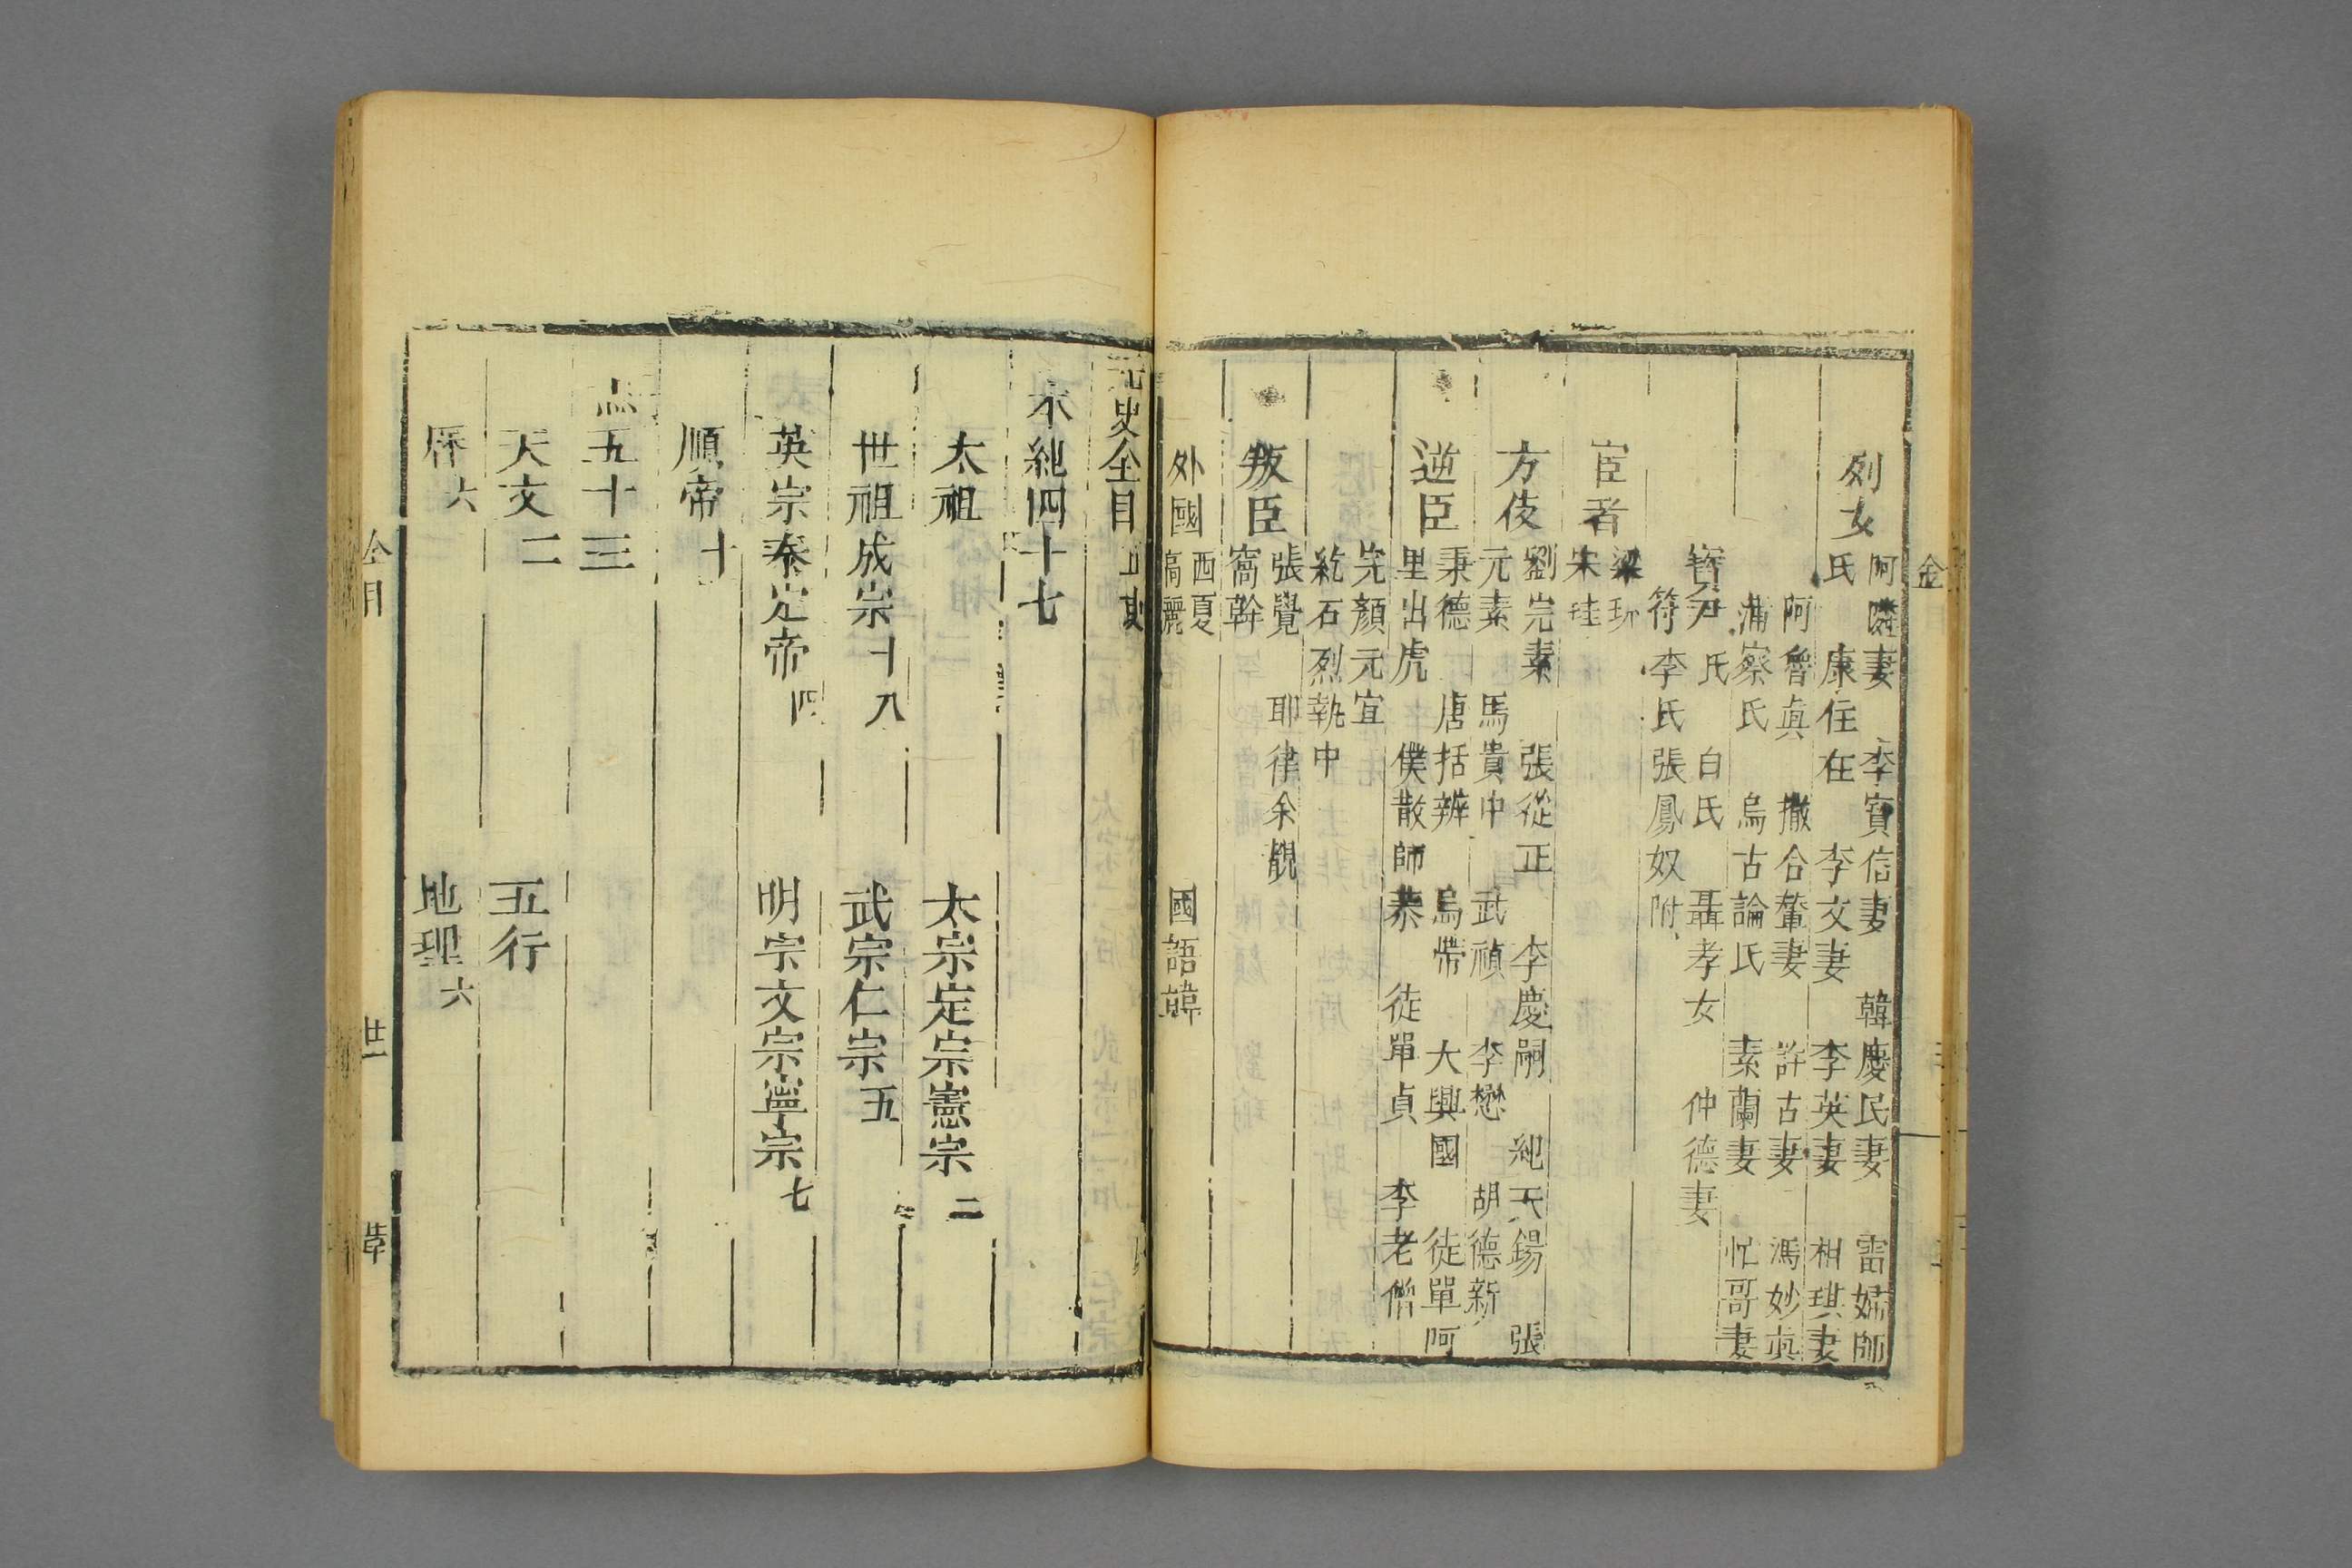 列女
阿鄰妻 李寶信妻 韓慶民妻 雷婦師
氏 康住住 李文妻 李英妻 相琪妻
阿魯眞 撒合輦妻 許古妻 馮妙眞
蒲察氏 烏古論氏 素蘭妻 忙哥妻
尹氏 白氏 聶孝女 仲德妻
寶符李氏張鳳奴附
宦者
梁珫
宋珪
方伎
劉完素 張從正 李慶嗣 紀天錫 張
元素 馬貴中 武禎 李懋 胡德新
逆臣
秉德 唐括辨 烏帶 大興國 徒單阿
里出虎 僕散師恭 徒單貞 李老僧
完顏元宜
紇石烈執中
叛臣
張覺 耶律余覩
窩斡
外國
西夏
高麗
國語解
元史全目
本紀四十七
太祖 太宗定宗憲宗二
世祖成宗十八 武宗仁宗五
英宗泰定帝四 明宗文宗寧宗七
順帝十
志五十三
天文二 五行
曆六 地理六
全目